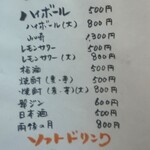 ハイボール 500円
ハイボール(大) 800円
山崎 1,300円
レモンサワー 500円
レモンサワー(大) 800円
梅酒 500円
焼酎(麦・芋) 500円
焼酎(麦・芋)(大) 800円
翠ジン 600円
日本酒 500円
雨情の月 800円
ソフトドリンク